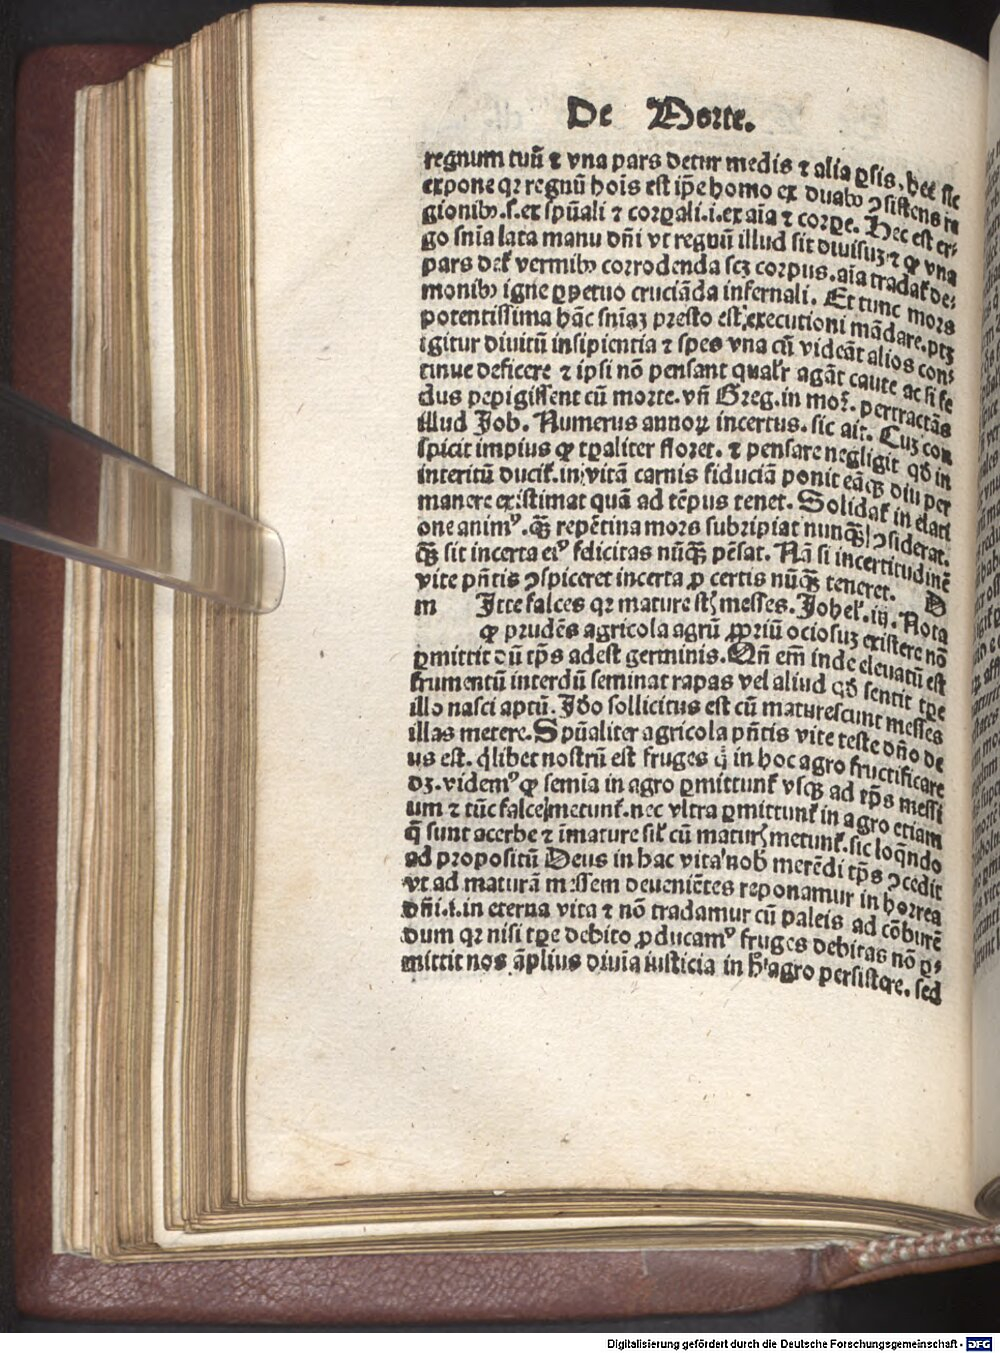 De Morte.
regnum tuũ ⁊ vna pars detur medis ⁊ alia ꝑsis. hec sic
expone qꝛ regnũ hoĩs est ip̃e homo ex duabꝰ ↄsistens re
gionibꝰ.s.ex sp̃uali ⁊ corꝑali.i.ex aĩa ⁊ corꝑe. Hec est er⸗
go sñia lata manu dñi vt regnũ illud sit diuisuꝫ ⁊ ꝙ vna
pars det᷑ vermibꝰ corrodenda scꝫ corpus. aĩa tradat᷑ de⸗
monibꝰ igne ꝑpetuo cruciãda infernali. Et tunc mors
potentissima hãc sñiaꝫ presto est executioni mãdare. ptꝫ
igitur diuitũ insipientia ⁊ spes vna cũ videãt alios con⸗
tinue deficere ⁊ ipsi nõ pensant qualr̃ agãt caute ac si fe
dus pepigissent cũ morte. vñ Greg. in moꝝ. pertractãs
illud Job. Numerus annoꝝ incertus. sic ait. Cuꝫ con
spicit impius ꝙ tꝑaliter floret. ⁊ pensare negligit qð in
interitũ ducit᷑. in vitã carnis fiduciã ponit eãqꝫ diu per
manere existimat quã ad tẽpus tenet. Solidat᷑ in elati
one animꝰ. qꝫ̃ repẽtina mors subripiat nunqꝫ̃ ↄsiderat.
qꝫ̃ sit incerta eiꝰ felicitas nũqꝫ̃ pẽsat. Nã si incertitudinẽ
vite pñtis ↄspiceret incerta ꝓ certis nũqꝫ̃ teneret. D
m Jtte falces qꝛ mature st̃ messes. Johel᷑. iij. Nota
ꝙ prudẽs agricola agrũ ꝓpriũ ociosuꝫ existere nõ
ꝑmittit dũ tp̃s adest germinis. Qñ em̃ inde eleuatũ est
frumentũ interdũ seminat rapas vel aliud qð sentit tꝑe
illo nasci aptũ. Jdo sollicitus est cũ maturescunt messes
illas metere. Sp̃ualiter agricola pñtis vite teste dño de
us est. q̃libet nostrũ est fruges q̃ in hoc agro fructificare
dꝫ. videmꝰ ꝙ semĩa in agro ꝑmittunt᷑ vsqꝫ ad tp̃s messi
um ⁊ tũc falce metunt᷑. nec vltra ꝑmittunt᷑ in agro etiam
q̃ sunt acerbe ⁊ ĩmature sil᷑ cũ matur̃ metunt᷑. sic loq̃ndo
ad propositũ Deus in hac vita nob̃ merẽdi tp̃s ↄcedit
vt ad maturã messem deueniẽtes reponamur in horrea
dñi.i.in eterna vita ⁊ nõ tradamur cũ paleis ad cõburẽ
dum qꝛ nisi tꝑe debito ꝓducamꝰ fruges debitas nõ ꝑ⸗
mittit nos ãplius diuia iusticia in h̾ agro persistere. sed
Digitalisierung gefördert durch die Deutsche Forschungsgemeinschaft - DFG